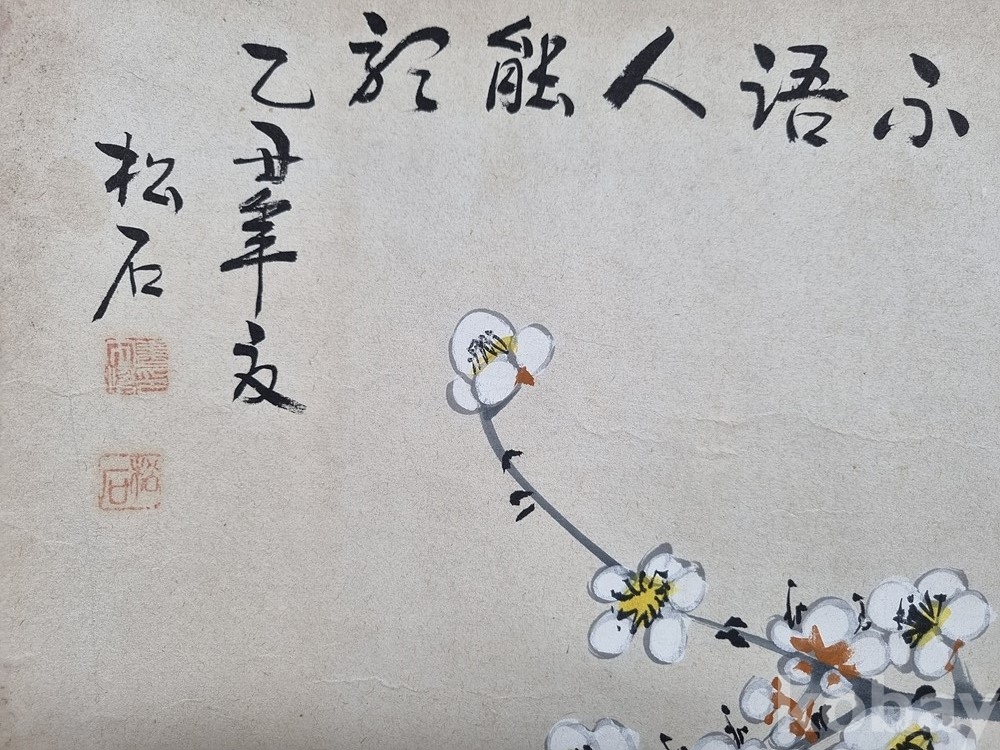 不語人能
乙丑年夏
松石
松石
kobay